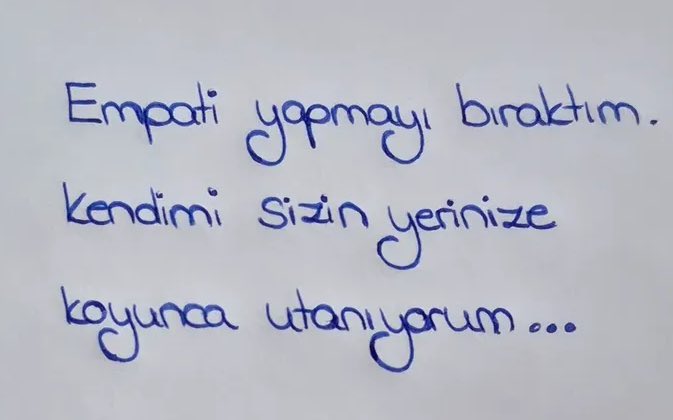 Empati yapmayı bıraktım.
kendimi sizin yerinize
koyunca utanıyorum...